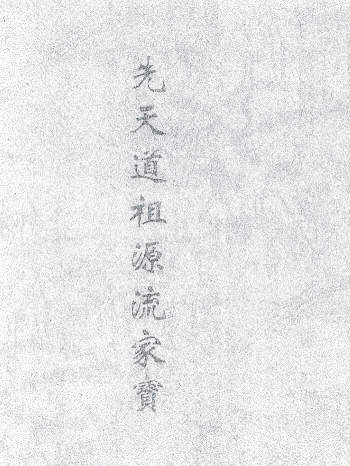 先天道祖源流家寶